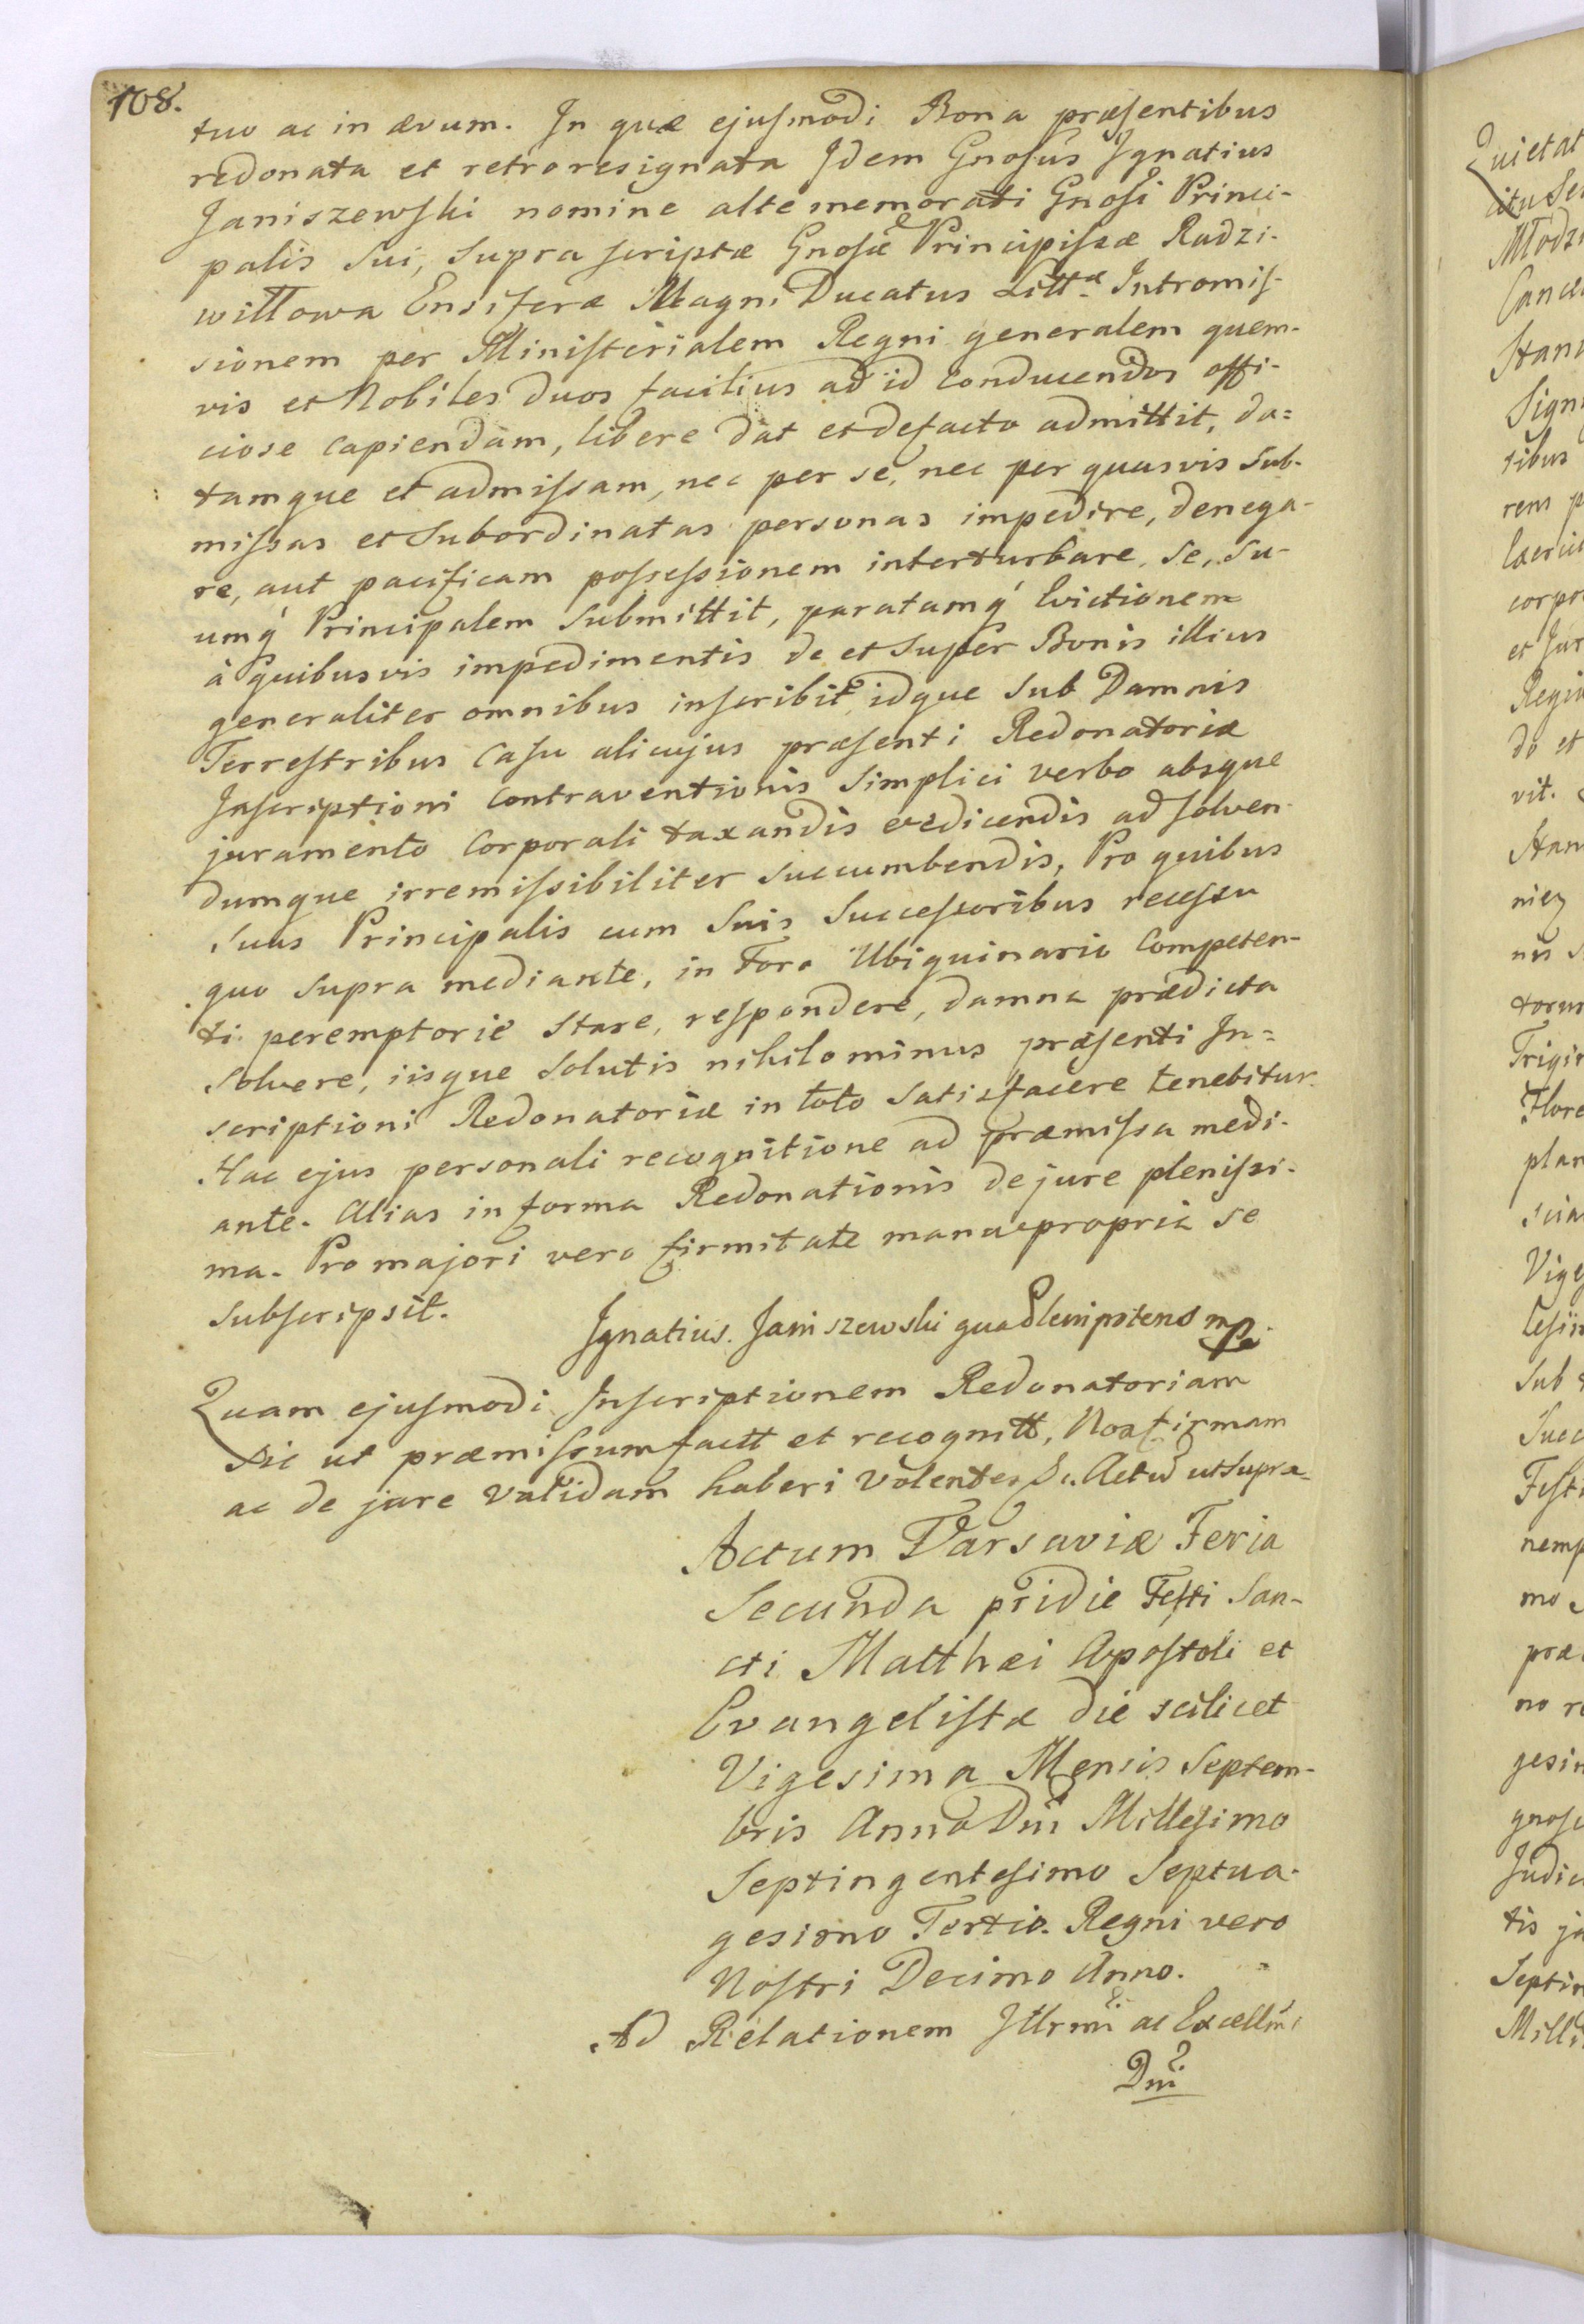 108.
tuo ac in ævum. In quæ ejusmodi Bona præsentibus
redonata et retroresignata Idem Gnosus Ignatius
Janiszewski nomine alte memorati Gnosi Princi-
palis sui, supra scriptæ Gnosæ Principissæ Radzi-
wiłłowa Ensiferæ Magni Ducatus Littæ Intromis-
sionem per Ministerialem Regni generalem quem-
vis et Nobiles duos facilius ad id conducendos offi-
ciose capiendam, libere dat et defacto admittit, da=
tamque et admissam, nec per se, nec per quasvis sub-
missas et subordinatas personas impedire, denega-
re, aut pacificam possessionem interturbare, se, su-
umq́ Principalem submittit, paratamq́ Evictionem
à quibusvis impedimentis de et super Bonis illius
generaliter omnibus inscribit, idque sub Damnis
Terrestribus casu alicujus præsenti Redonatoriæ
Inscriptioni contraventionis simplici verbo absque
juramento corporali taxandis evedicendis ad solven-
dumque irremissibiliter succumbendis, Pro quibus
suus Principalis cum suis Successoribus recessu
quo supra mediante, in Foro Ubiquinario Competen-
ti peremptorie stare, respondere, damna prædicta
solvere, iisque solutis nihilominus præsenti In=
scriptioni Redonatoriæ in toto satisfacere tenebitur
Hac ejus personali recognitione ad præmissa medi-
ante. Alias in forma Redonationis de jure plenissi-
ma. Pro majori vero firmitate manu propria se
subscripsit.
Ignatius Janiszewski qua Plenipotens mp.
Quam ejusmodi Inscriptionem Redonatoriam
sic ut præmissum factt et recognitt, Nos firmam
ac de jure validam haberi volentes &c. Actū ut supra
Actum Varsaviæ Feria
Secunda pridie Festi San-
cti Matthæi Apostoli et
Evangelistæ die scilicet
Vigesima Mensis Septem-
bris Anno Dni Millesimo
Septingentesimo Septua-
gesimo Tertio. Regni vero
Nostri Decimo Anno.
Ad Relationem Illrmi ac Excellmi
Dni
Quietat
Modz
Cance
Stani
Sign
sibus
rens p
Exerci
corpor
et Jur
Regia
do et
vit.
Stan
niez
nis s
torum
Trigin
Flore
plan
scia
Viges
sub
Succ
Festi
nemp
mo
præ
no re
gesim
gnosc
Judic
tis ju
Septin
Milli